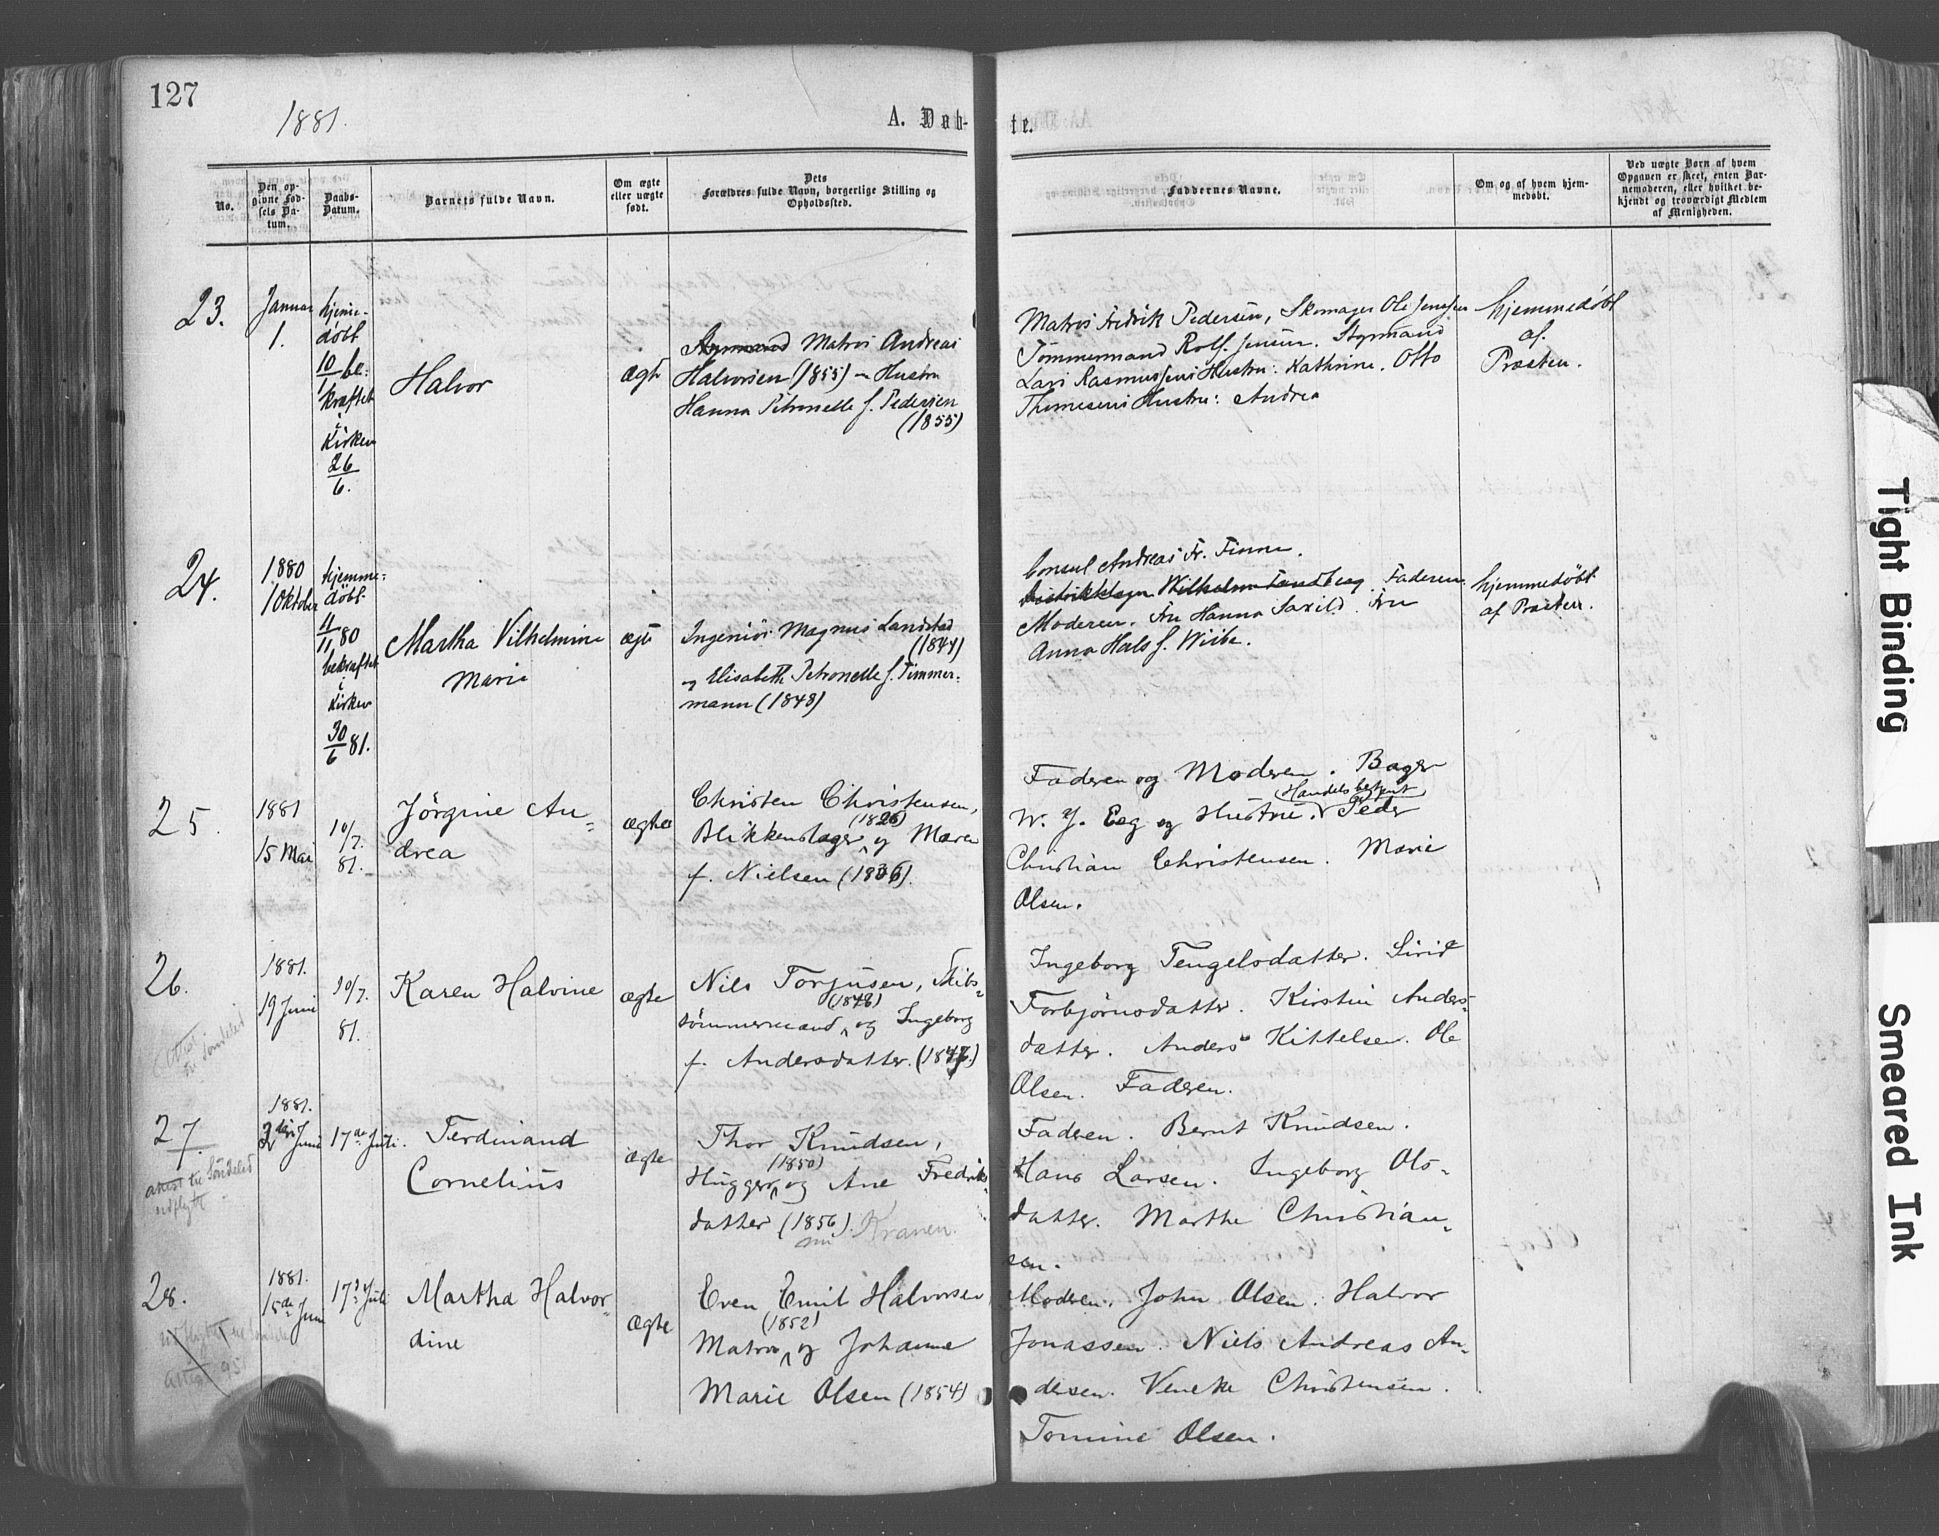 127
1881.
A. Døb-
te.
No.
Den op-
givne Fød-
sels Da-
tum.
Daabs-
Datum.
Barnets fulde Navn.
Om ægte
eller uægte
født.
Dets
Forældres fulde Navn, borgerlige Stilling og
Opholdssted.
Faddernes Navne.
Om og af hvem hjem-
medøbt.
Ved uægte Børn af hvem
Opgaven er skeet, enten Bar-
nemoderen, eller hvilket be-
kjendt og troværdigt Medlem
af Menigheden.
23.
Januar
1.
hjem-
døbt
10/1 be-
kræftet
i
Kirken
26/6.
Halvor
ægte
Styrmand Matros Andreas
Halvorsen (1855) – Hustru
Hanna Petronelle f. Pedersen
(1855)
Matros Fedrik Pedersen, Skomager Ole Jenssen
Tømmermand Rolf. Jensen. Styrmand
Lars Rasmussens Hustru: Kathrine. Otto
Thomesens Hustru: Andrea
hjemmedøbt
af.
Præsten.
24.
1880
1 Oktober
hjemme-
døbt
11/11 80
bekræftet
i
Kirken
30/6 81.
Martha Vilhelmine
Marie
ægte
Ingeniør Magnus Landstad
(1844)
og Elisabeth Petronelle f. Timmer-
mann (1848)
Consul Andreas Fr. Finne.
Wilhelm Landberg. Faderen.
Moderen. Fru Hanna Saxild. Fru
Anna Hals f. Wiibe.
hjemmedøbt
af Præsten.
25.
1881
15 Mai
10/7.
81.
Jørgine An-
drea
ægte
Christen Christensen,
(1826)
Blikkenslager og Maren
f. Nielsen (1836).
Faderen og Moderen. Bager
Handelsbetjent
W. J. Eeg og Hustru. Peder
Christian Christensen. Marie
Olsen.
26.
1881.
19 Juni
10/7.
81.
Karen Halvine
ægte
Nils Torjusen, Skibs-
(1848)
tømmermand og Ingeborg
f. Andersdatter. (1847.)
Ingeborg Tengelsdatter. Sirid
Torbjørnsdatter. Kirstin Anders-
datter. Anders Kittelsen. Ole
Olsen. Faderen.
til Søndeled
27.
1881.
2den Juni
17de Juli.
Ferdinand
Cornelius
ægte
Thor Knudsen,
(1850)
Hugger, og Ane Fredriks-
datter (1856).
nu Kranen.
Faderen. Bernt Knudsen.
Hans Larsen. Ingeborg Ols-
datter. Marthe Christian-
sen.
attest til Søndeled
udflytt
28.
1881.
15de Juni
17de Juli
Martha Halvor-
dine
ægte
Even Emil Halvorsen,
(1852)
Matros og Johanne
Marie Olsen (1854)
Moderen. John Olsen. Halvor
Jonassen. Niels Andreas An-
dersen. Vencke Christensen.
Tomine Olsen.
Tight Binding
Smeared Ink